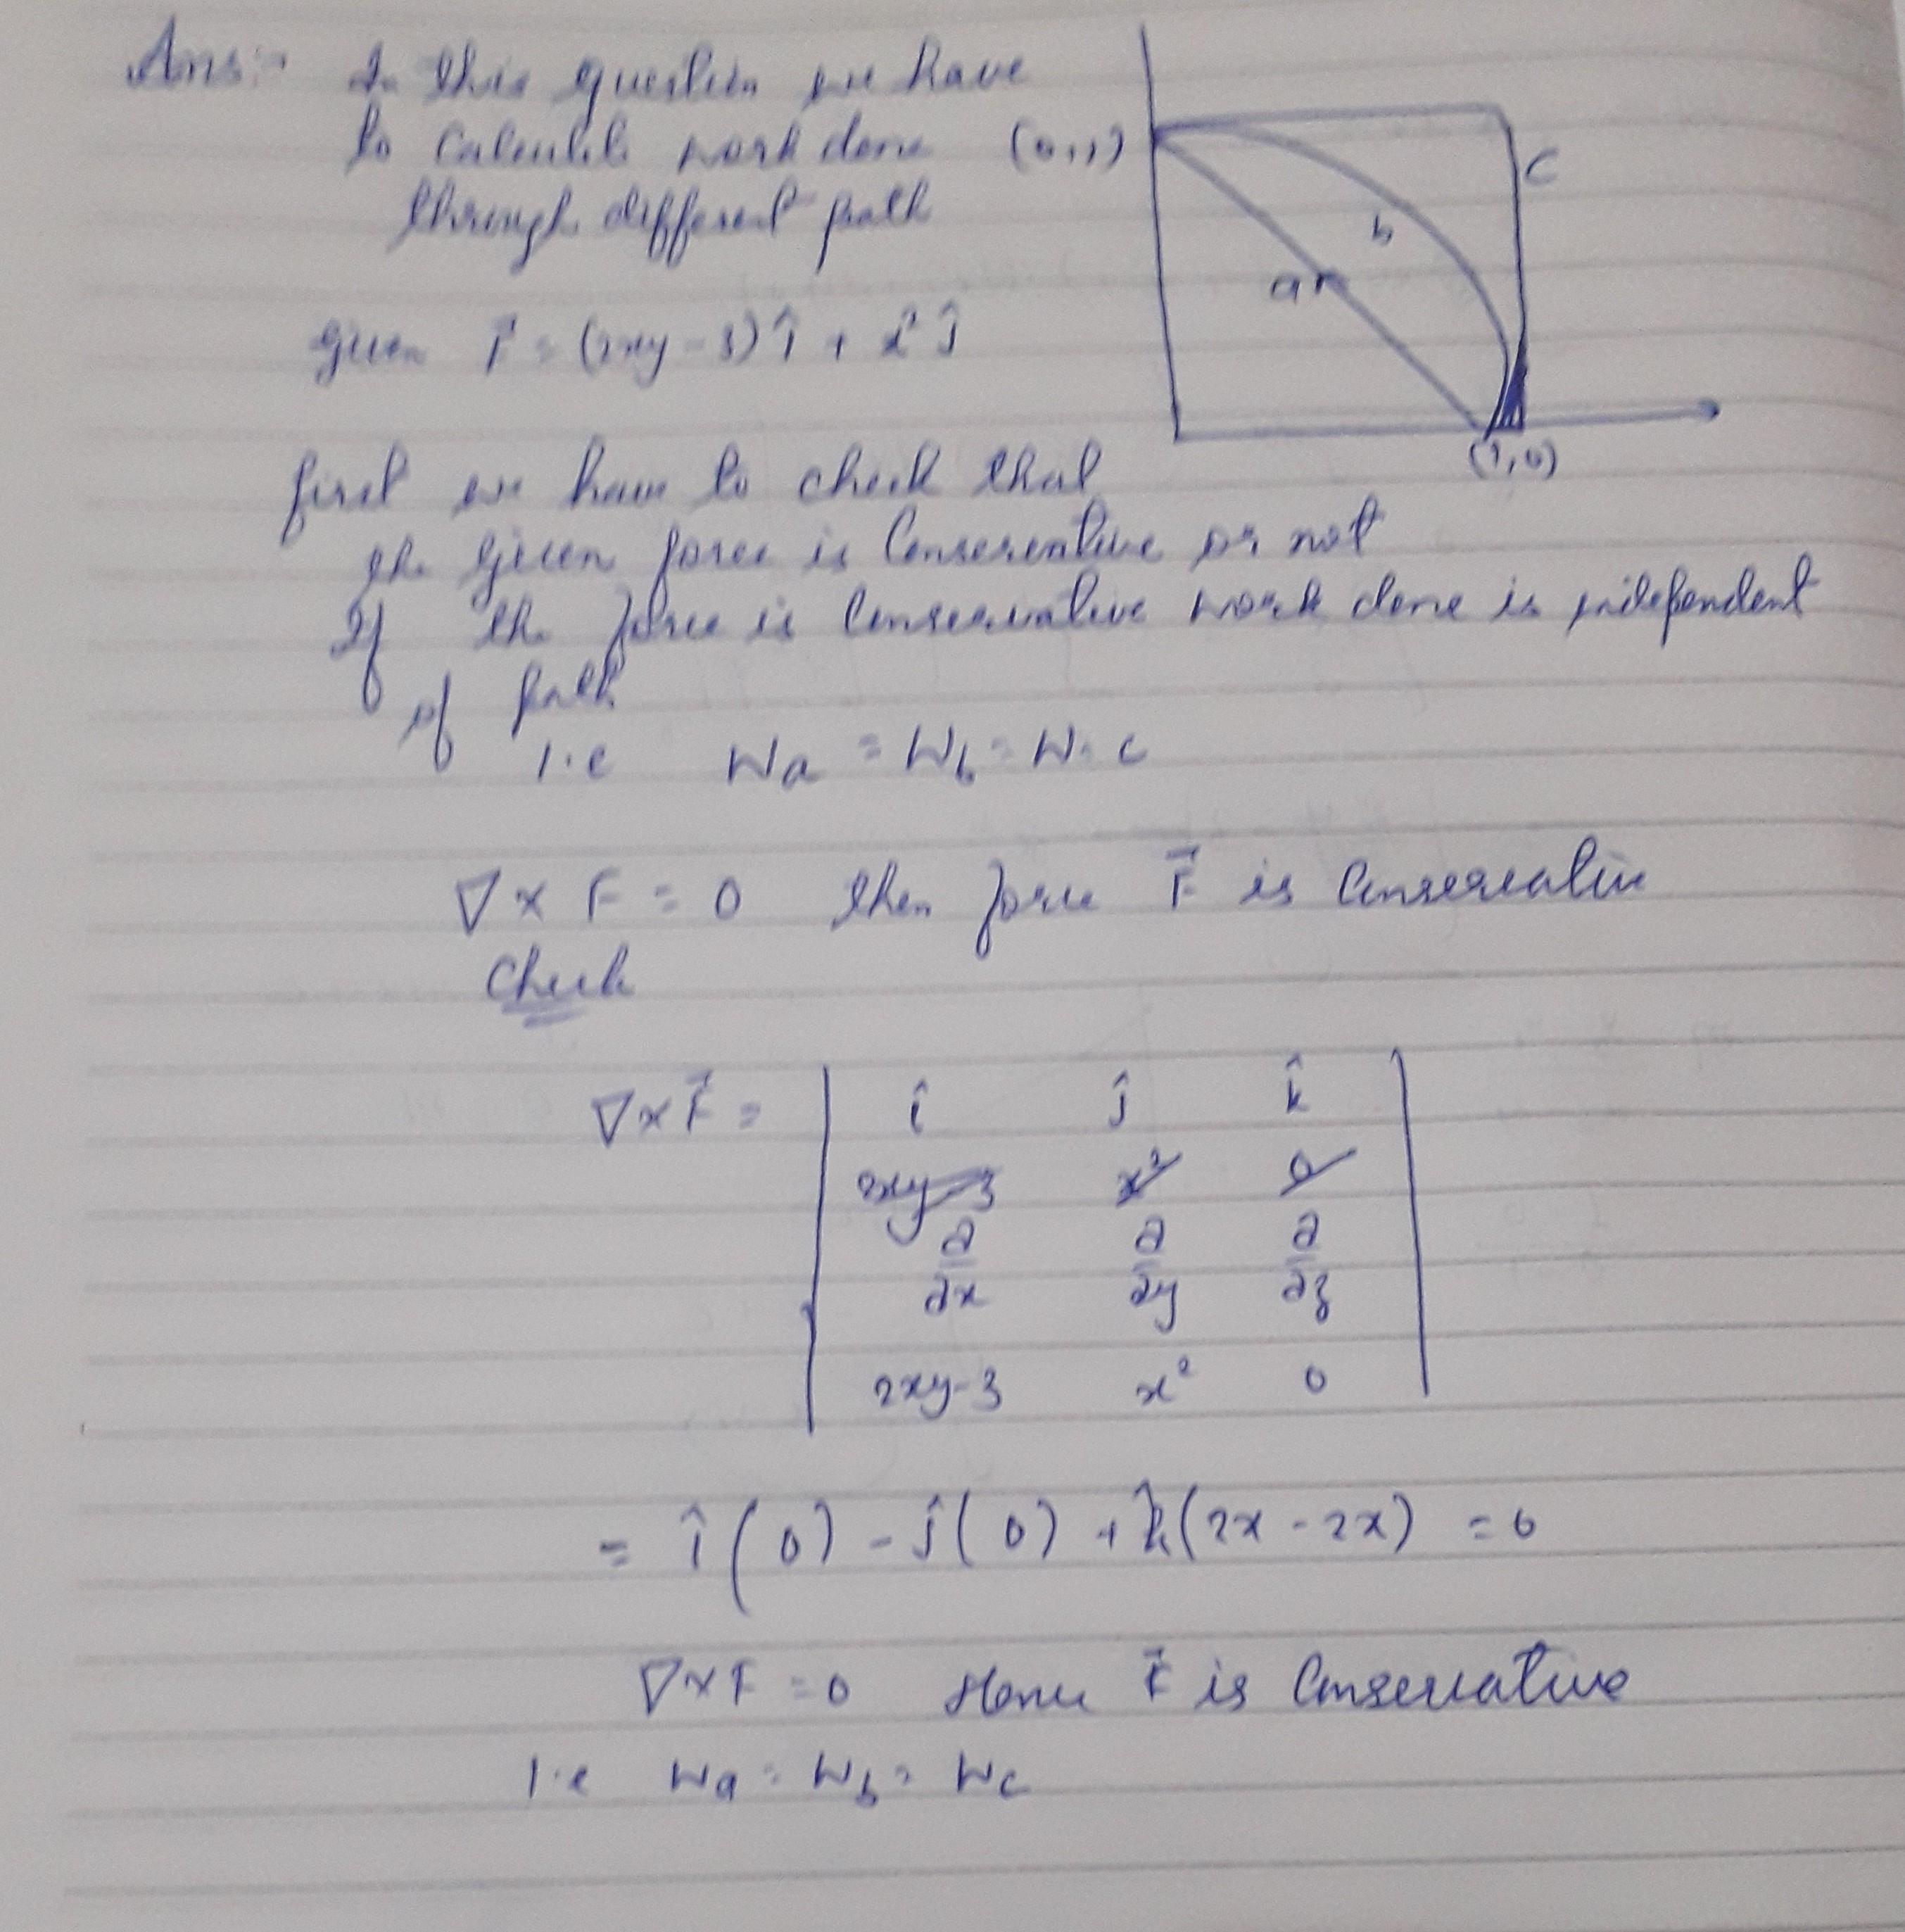 Ans:- In this question we have
to calculate work done
through different path
(0,1)
C
b
a
(1,0)
given F⃗ = (2xy-3) î + x² ĵ
first we have to check that
the given force is Conservative or not
If the force is Conservative work done is independent
of path
i.e Wa = Wb = W.c
∇ × F = 0 then force F⃗ is Conservative
Check
∇×F⃗ = | î ĵ k̂ |
2xy-3 x² 0
∂/∂x ∂/∂y ∂/∂z
2xy-3 x² 0
= î(0) - ĵ(0) + k̂(2x-2x) = 0
∇×F = 0 Hence F⃗ is Conservative
i.e Wa = Wb = Wc